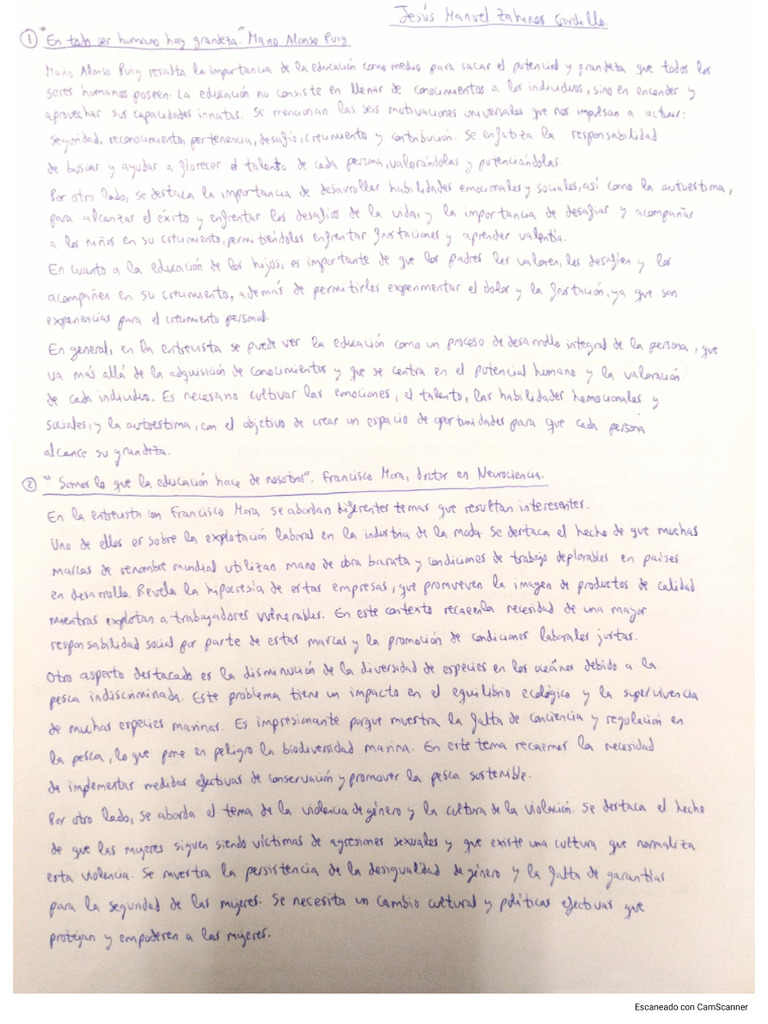 Jesús Manuel Zahinos Gordillo
① "En todo ser humano hay grandeza." Mario Alonso Puig
Mario Alonso Puig resalta la importancia de la educación como medio para sacar el potencial y grandeza que todos los
seres humanos poseen. La educación no consiste en llenar de conocimientos a los individuos, sino en encender y
aprovechar sus capacidades innatas. Se mencionan las seis motivaciones universales que nos impulsan a actuar:
seguridad, reconocimiento, pertenencia, desafío, crecimiento y contribución. Se enfatiza la responsabilidad
de buscar y ayudar a florecer el talento de cada persona, valorándolas y potenciándolas.
Por otro lado, se destaca la importancia de desarrollar habilidades emocionales y sociales, así como la autoestima,
para alcanzar el éxito y enfrentar los desafíos de la vida, y la importancia de desafiar y acompañar
a los niños en su crecimiento, permitiéndoles enfrentar frustraciones y aprender valentía.
En cuanto a la educación de los hijos, es importante de que los padres les valoren, les desafíen y los
acompañen en su crecimiento, además de permitirles experimentar el dolor y la frustación, ya que son
experiencias para el crecimiento personal.
En general, en la entrevista se puede ver la educación como un proceso de desarrollo integral de la persona, que
va más allá de la adquisición de conocimientos y que se centra en el potencial humano y la valoración
de cada individuo. Es necesario cultivar las emociones, el talento, las habilidades hemocionales y
sociales, y la autoestima, con el objetivo de crear un espacio de oportunidades para que cada persona
alcance su grandeza.
② "Somos lo que la educación hace de nosotros". Francisco Mora, doctor en Neurociencia.
En la entrevista con Francisco Mora se abordan diferentes temas que resultan interesantes.
Uno de ellos es sobre la explotación laboral en la industria de la moda. Se destaca el hecho de que muchas
marcas de renombre mundial utilizan mano de obra barata y condiciones de trabajo deplorables en países
en desarrollo. Revela la hipocresía de estas empresas, que promueven la imagen de productos de calidad
mientras explotan a trabajadores vulnerables. En este contexto recae en la necesidad de una mayor
responsabilidad social por parte de estas marcas y la promoción de condiciones laborales justas.
Otro aspecto destacado es la disminución de la diversidad de especies en los océanos debido a la
pesca indiscriminada. Este problema tiene un impacto en el equilibrio ecológico y la supervivencia
de muchas especies marinas. Es impresionante porque muestra la falta de conciencia y regulación en
la pesca, lo que pone en peligro la biodiversidad marina. En este tema recaemos la necesidad
de implementar medidas efectivas de conservación y promover la pesca sostenible.
Por otro lado, se aborda el tema de la violencia de género y la cultura de la violación. Se destaca el hecho
de que las mujeres siguen siendo víctimas de agresiones sexuales y que existe una cultura que normaliza
esta violencia. Se muestra la persistencia de la desigualdad de género y la falta de garantías
para la seguridad de las mujeres. Se necesita un cambio cultural y políticas efectivas que
protejan y empoderen a las mujeres.
Escaneado con CamScanner